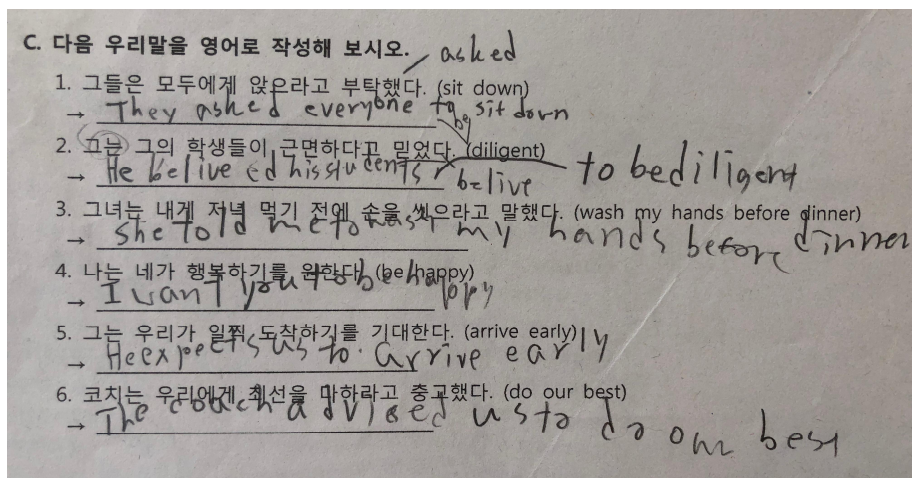 C. 다음 우리말을 영어로 작성해 보시오.
asked
1. 그들은 모두에게 앉으라고 부탁했다. (sit down)
→ They asked everyone to sit down
be
2. 그는 그의 학생들이 근면하다고 믿었다. (diligent)
→ He belive ed his students to be diligent
belive
3. 그녀는 내게 저녁 먹기 전에 손을 씻으라고 말했다. (wash my hands before dinner)
→ She told me to wash my hands before dinner
4. 나는 네가 행복하기를 원한다. (be happy)
→ I want you to be happy
5. 그는 우리가 일찍 도착하기를 기대한다. (arrive early)
→ He expects us to arrive early
6. 코치는 우리에게 최선을 다하라고 충고했다. (do our best)
→ The coach advised us to do our best